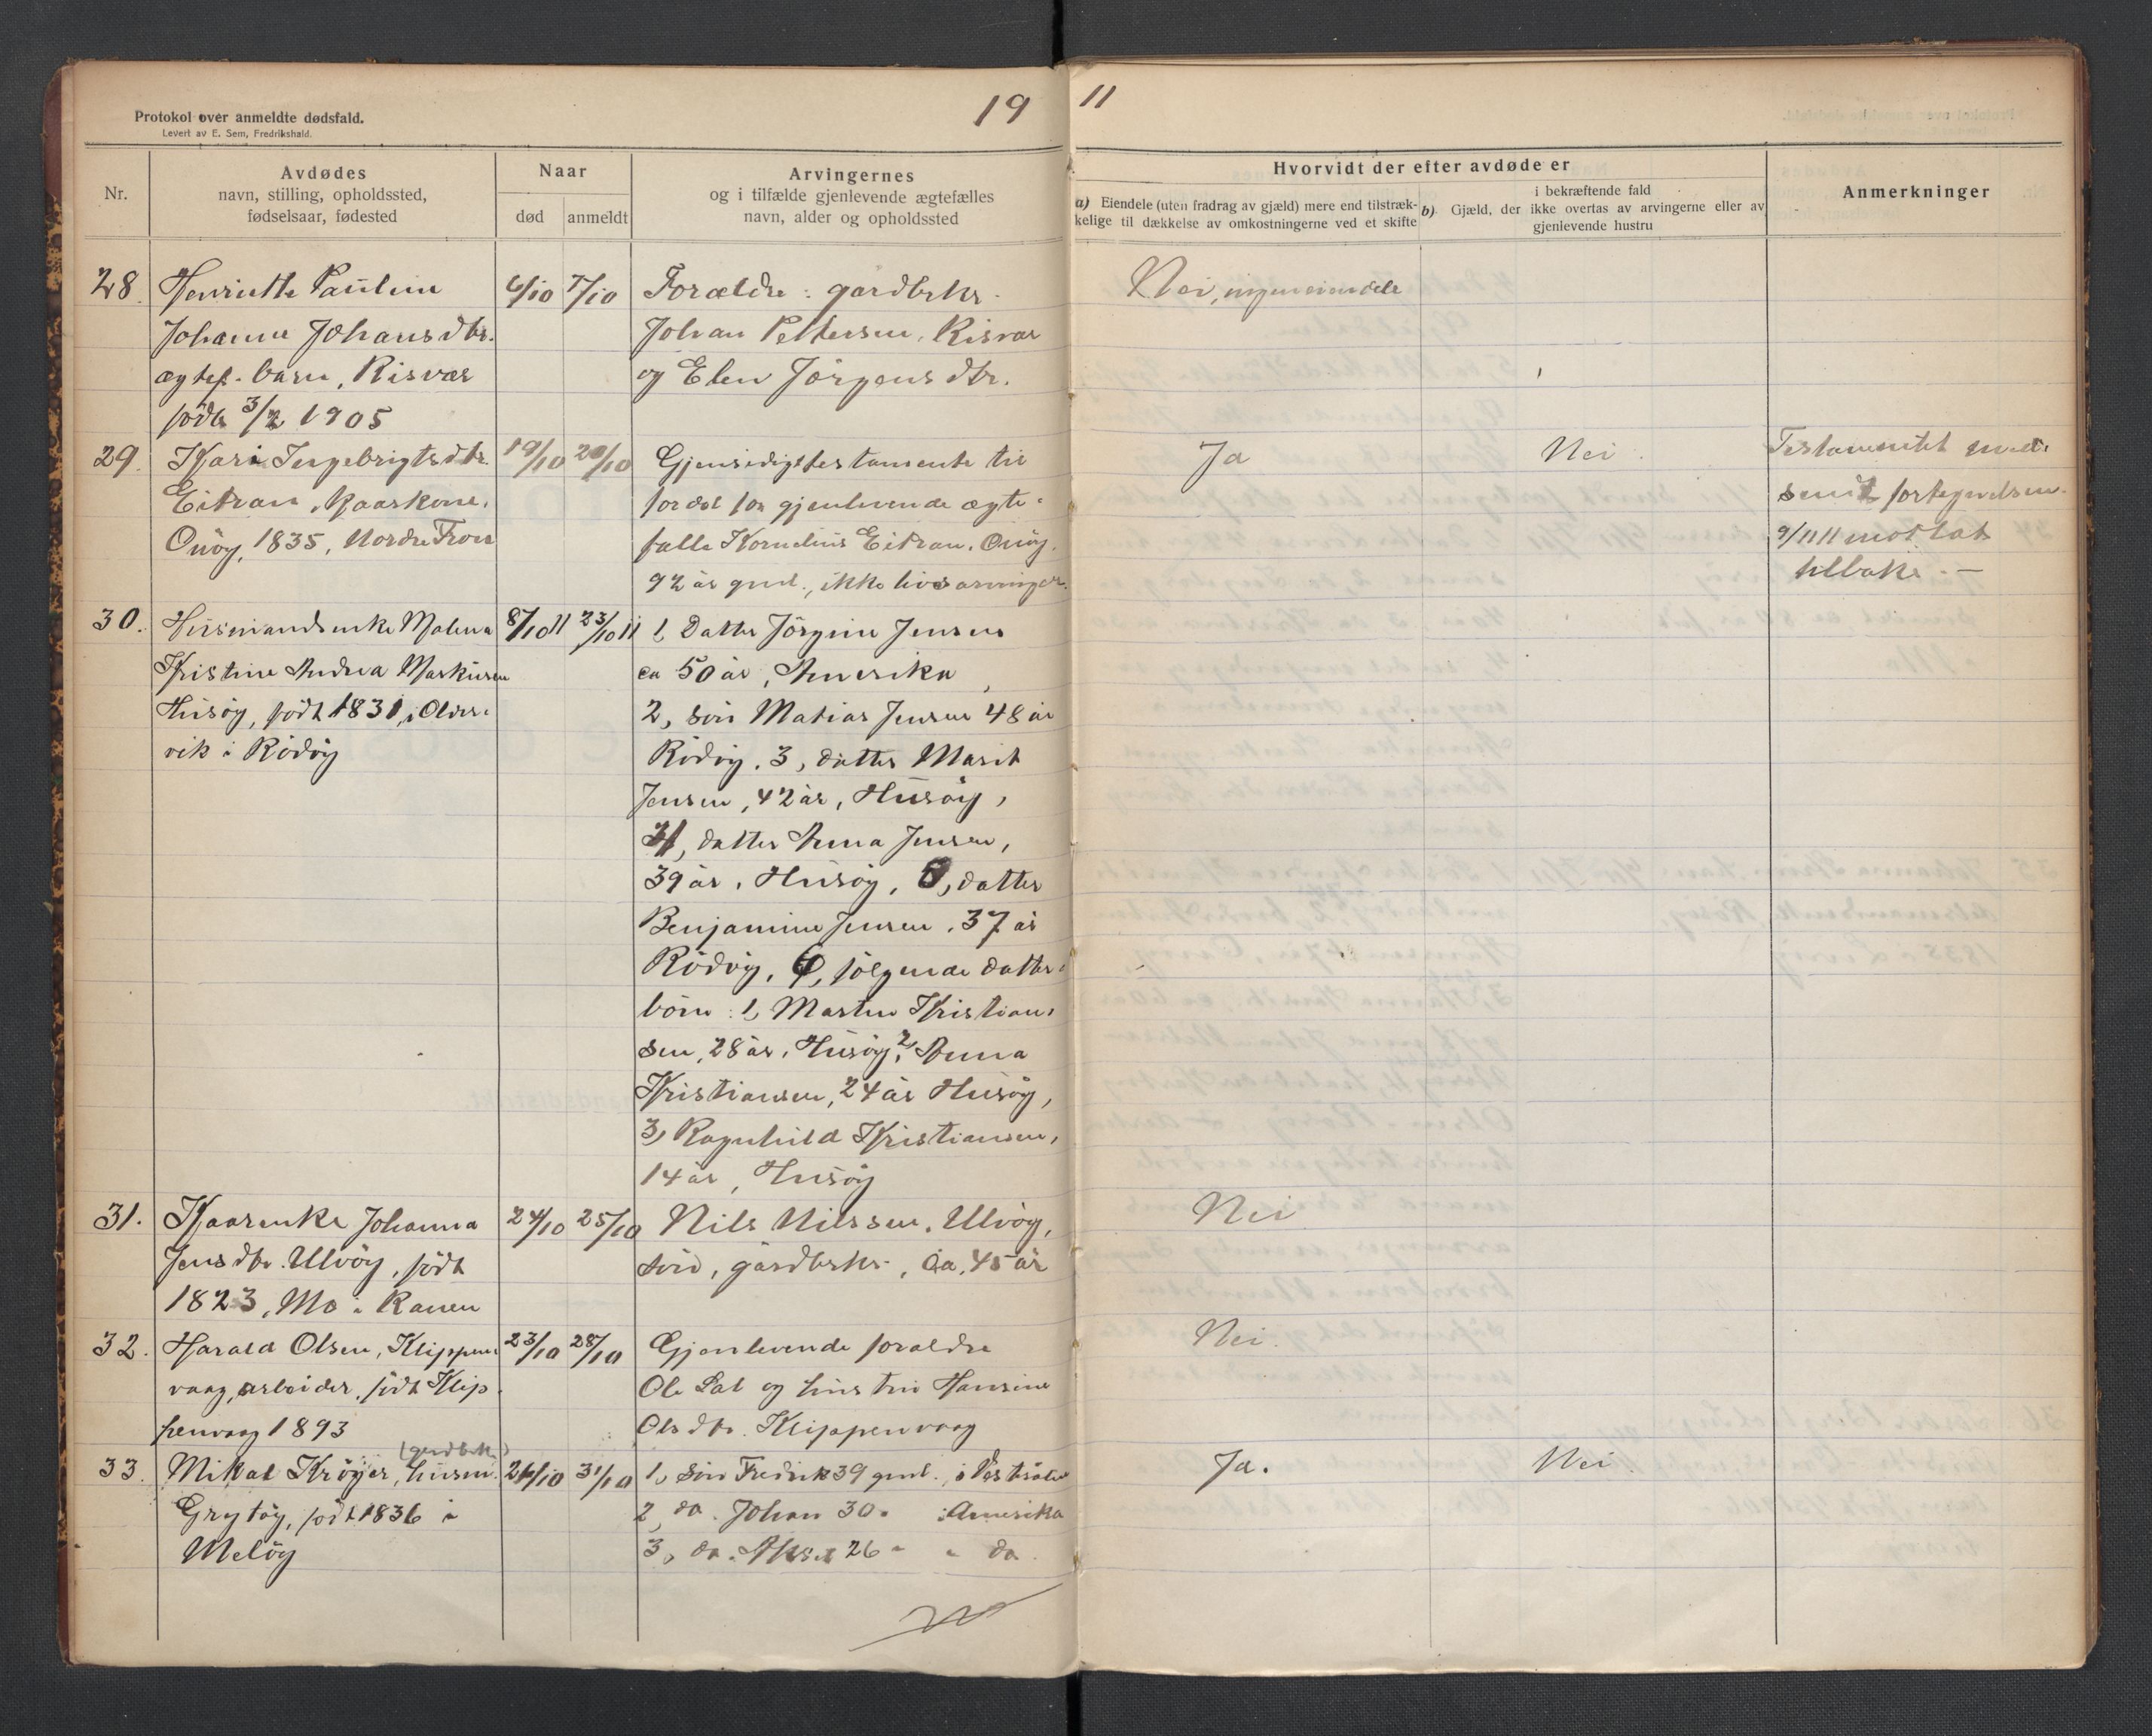 19 11
Protokol over anmeldte dødsfald.
Levert av E. Sem, Fredrikshald.
Nr.
Avdødes
navn, stilling, opholdssted,
fødselsaar, fødested
Naar
død anmeldt
Arvingernes
og i tilfælde gjenlevende ægtefælles
navn, alder og opholdssted
Hvorvidt der efter avdøde er
a) Eiendele (uten fradrag av gjæld) mere end tilstræk-
kelige til dækkelse av omkostningerne ved et skifte
b) Gjæld, der i bekræftende fald
ikke overtas av arvingerne eller av
gjenlevende hustru
Anmerkninger
28. Henriette Pauline 6/10 7/10 Forældre: gardbrkr. Nei, ingen eiendele
Johanne Johansdtr. Johan Pettersen, Risvær
ægtef. barn, Risvær og Elen Jörgensdtr.
födt 3/2 1905
29. Kari Ingebrigtsdtr. 19/10 20/10 Gjensidigtestamente til Ja Nei. Testamentet med-
Eitran, kaarkone, fordel for gjenlevende ægte- sendt fortegnelsen
Onöy, 1835, Nordre Fron fælle Kornelius Eitran, Onöy, 9/11 11 mottat
92 år gml., ikke livsarvinger. tilbake. —
30. Husmandsenke Malena 8/10 11 23/10 11 1, Datter Jörgine Jensen
Kristine Andrea Markusen ca 50 år, Amerika,
Husöy, födt 1831, i Older- 2, sön Matias Jensen 48 år
vik i Rödöy Rödöy. 3, datter Marit
Jensen, 42 år, Husöy,
4, datter Anna Jensen,
39 år, Husöy, 5, datter
Benjamine Jensen, 37 år
Rödöy, 6, fölgende datter-
börn: 1, Martin Kristian-
sen, 28 år, Husöy, 2, Anna
Kristiansen, 24 år Husöy,
3, Ragnhild Kristiansen,
14 år, Husöy
31. Kaarenke Johanna 24/10 25/10 Nils Nilssen, Ulvöy, Nei
Jensdtr. Ulvöy, födt sön, gårdbrkr., ca. 45 år
1823, Mo i Ranen
32. Harald Olsen, Klippen- 23/10 28/10 Gjenlevende forældre Nei.
vaag, arbeider, födt Klip- Ole Sal og hustru Hansine
penvaag 1893 Olsdtr. Klippenvaag
(gardbrk)
33. Mikal Kröyer, husm. 26/10 31/10 1, sön Fredrik 39 gml., i Vesterålen Ja. Nei.
Grytöy, födt 1836 i 2, do. Johan 30 " i Amerika
Melöy 3, do. Aksel 26 " " do.